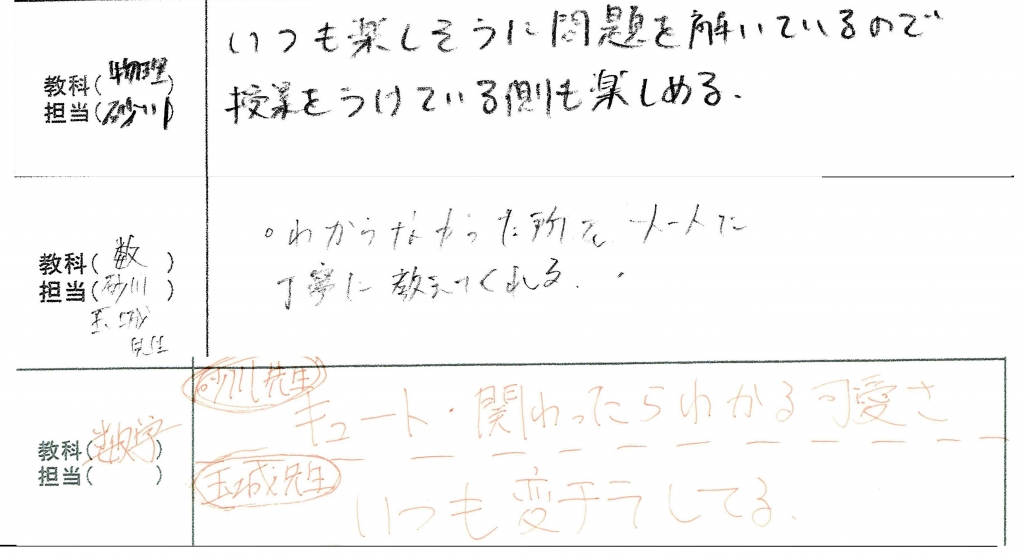 教科(物理)
担当(砂川)
いつも楽しそうに問題を解いているので
授業をうけている側も楽しめる.
教科(数)
担当(砂川)
玉城
。わからなかった所を 一人一人に
丁寧に教えてくれる.
教科(数学)
担当( )
砂川先生
キュート・関わったらわかる可愛さ
玉城先生
いつも変チラしてる.